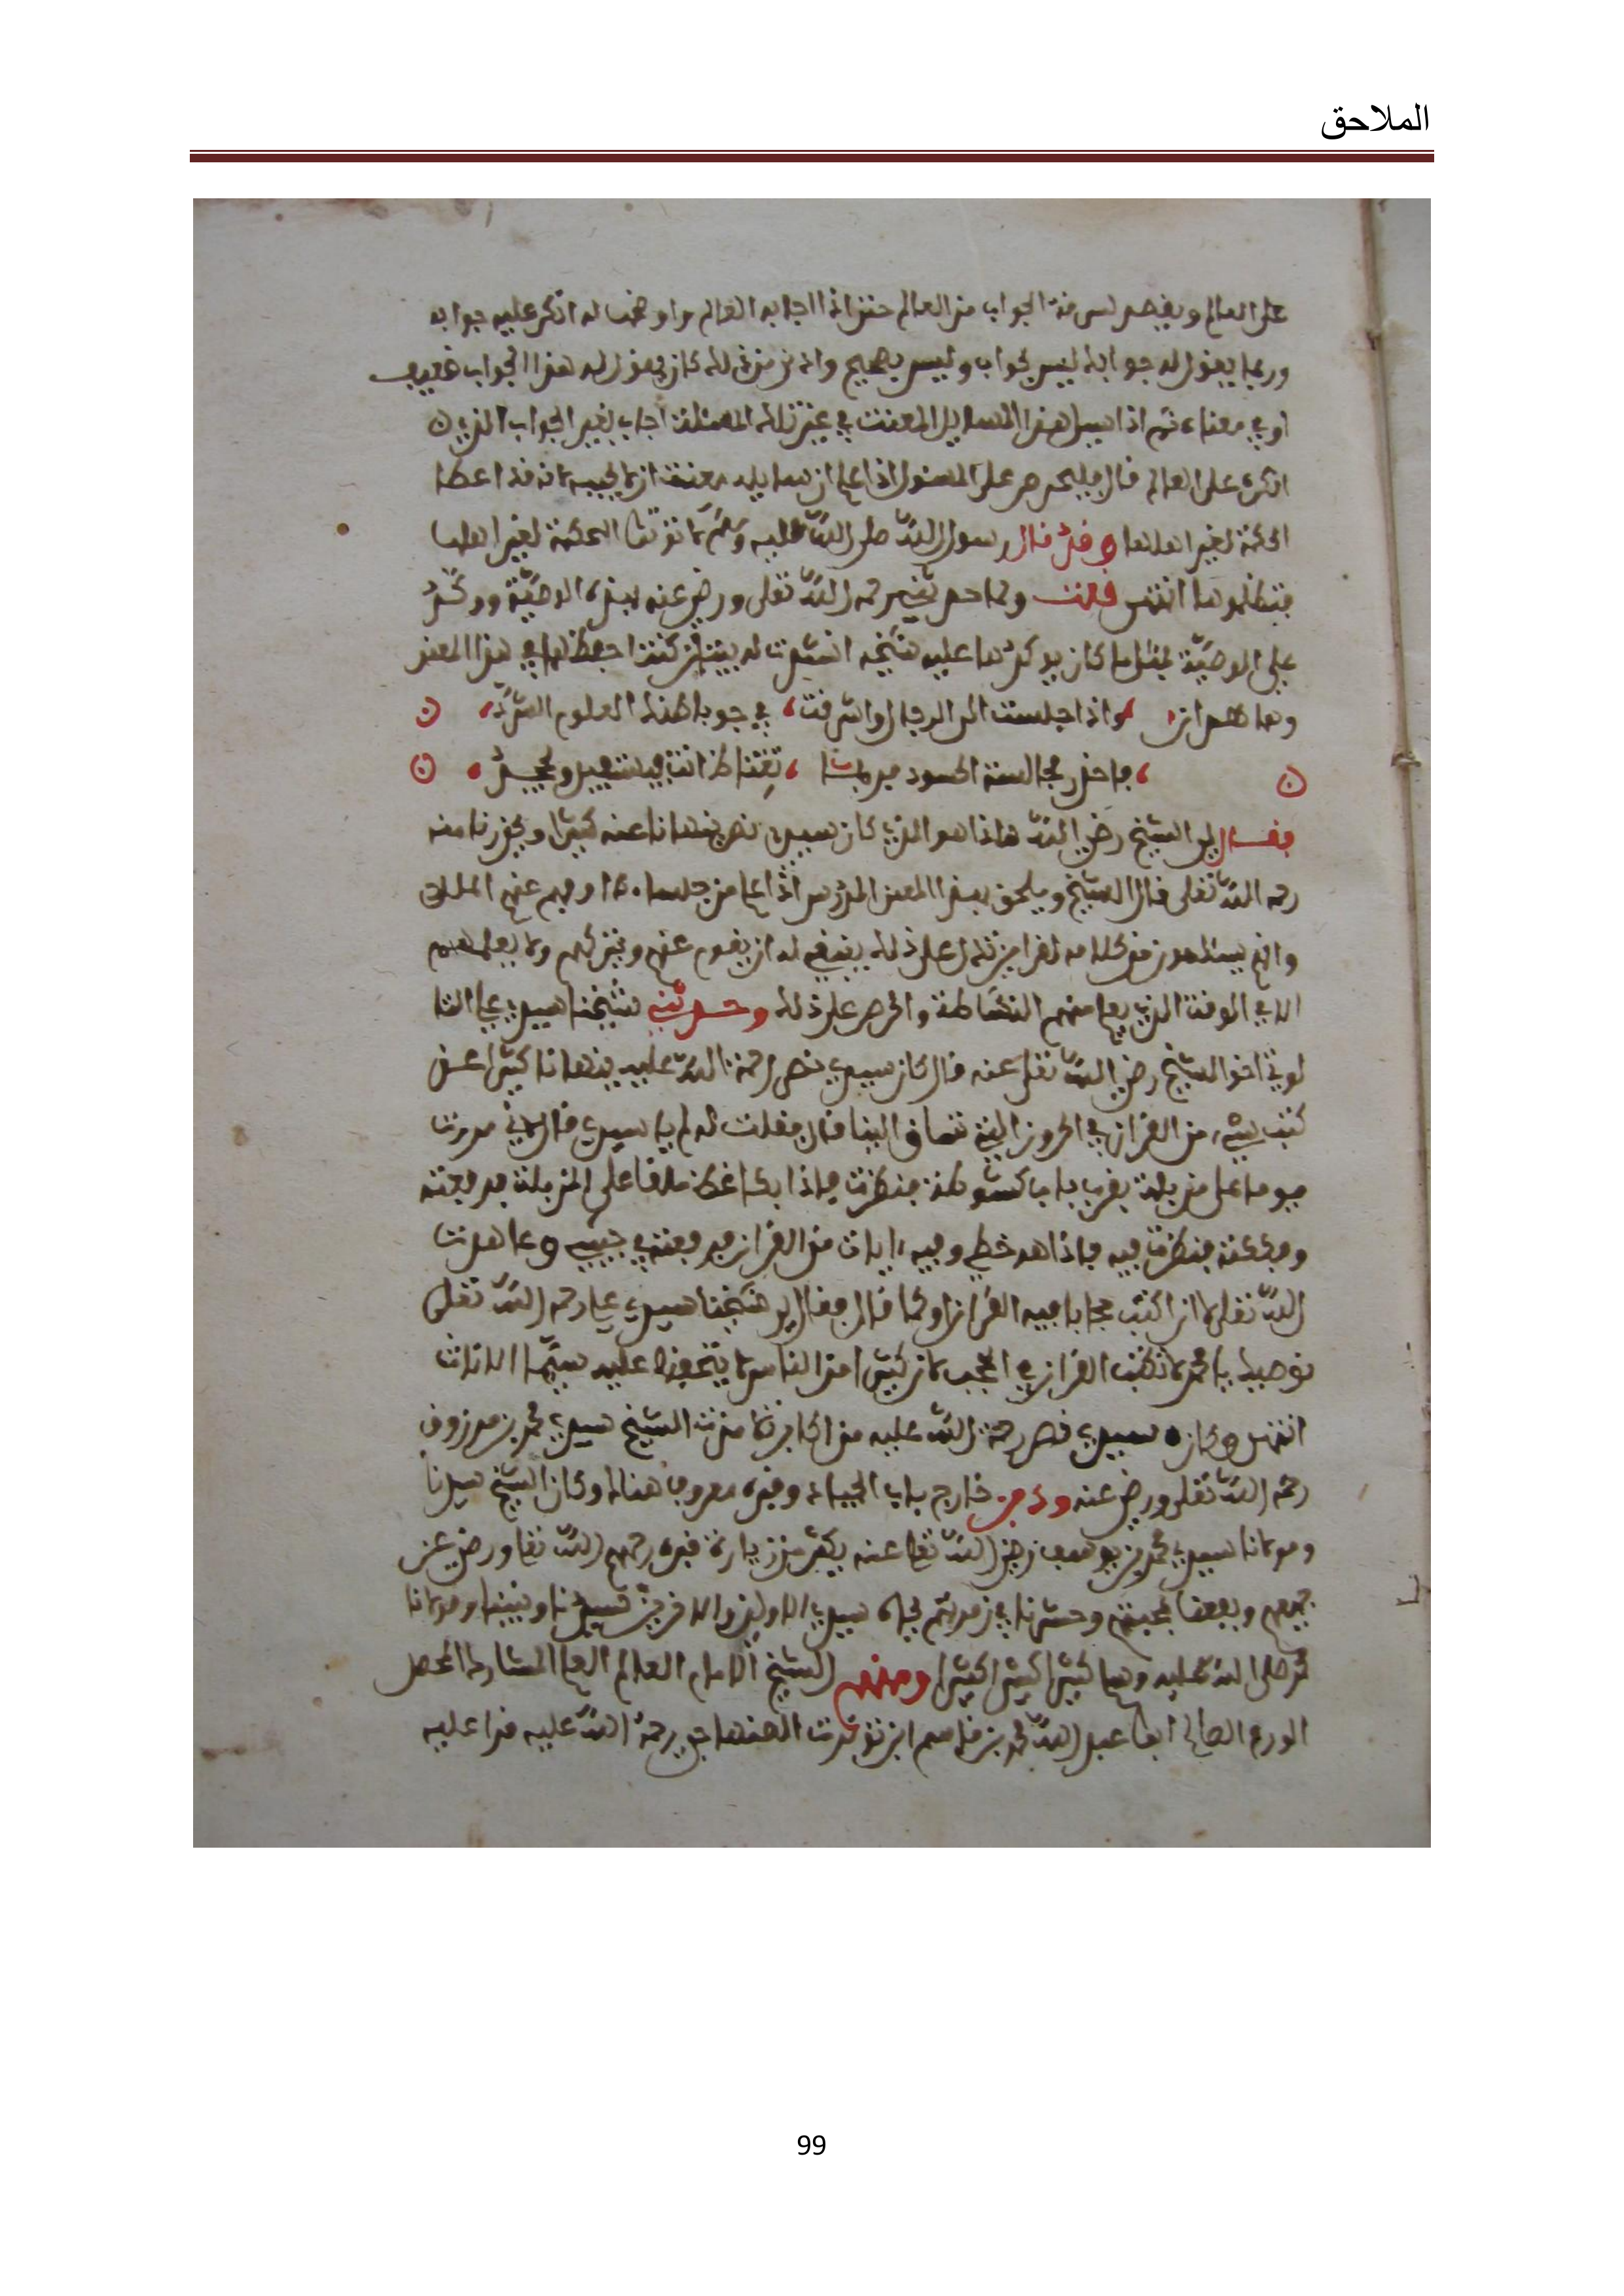 الملاحق
على العالم و سرفة الجواب من العالم حتى اذا اجابه العالم واوضح له انكر عليه جوابه
وربما يقول له جوابك ليس بجواب وليس بصحيح كان يقول له هذا الجواب ضعيف
او في معناه ثم اذا سيل هذا السايل المعنت في غير تلك المسئلة اجاب بغير الجواب الذي
انكره على العالم قال فليحرص على المسئول اذا علم ان سايله معنت ان لا يجيبه لانه قد اعطا
الحكمة لغير اهلها وقد قال رسول الله صلى الله عليه وسلم لا تؤتوا الحكمة لغير اهلها
فتظلموها انتهى قلت ولما حدثني رحمه الله تعلى ورضي عنه بهذه الوصية ووكد
علي الوصية بمثل ما كان يوكدها عليه شيخه انشدت له بيتين كنت احفظهما في هذا المعنى
وهما هذان واذا جلست الى الرجال واشرقت في جو باطنك العلوم الشرد
فاحذر مجالسة الحسود فربما تغتاظ انت ويستفيد ويجحد
فقال لي الشيخ رضي الله هاذا هو الذي كان سيدي نصر ينهانا عنه كثيرا ويحذرنا منه
رحمه الله تعلى قال الشيخ ويلحق بهذا المعنى المدرس اذا علم من جلسائه او فهم عنهم الملل
وانهم من كلامه ذلك ينبغي له ان يقوم عنهم ويتركهم ولا يعلمهم
الا في الوقت الذي يعلم منهم النشاط والحرص على ذلك وحدثني شيخنا سيدي علي التا
لوتي اخو الشيخ رضي الله تعلى عنه قال كان سيدي نصر رحمة الله عليه ينهانا كثيرا عن
كتب شيء من القرءان في الحروز التي تساق الينا قال فقلت له لم يا سيدي قال لاني مررت
يوما على مزبلة بقرب باب كشوطة فنظرت فاذا بكاغظ ملقا على المزبلة فرفعته
وفككته فنظرت فيه فاذا هو خطي وفيه ءايات من القرءان فرفعته في جيبي وعاهدت
الله تعلى لا ان اكتب حجابا فيه القرءان او كما قال فقال لي شيخنا سيدي علي رحمه الله تعلى
نوصيك يا محمد لا تكتب القرءان في الحجب لان كثيرا من الناس لا يتحفظ عليه سيما الاناث
انتهى وكان سيدي نصر رحمة الله عليه من اكابر تلامذة الشيخ سيدي محمد بن مرزوق
رحمه الله تعلى ورضي عنه ودفن خارج باب الجياد وقبره معروف هناك وكان الشيخ سيدنا
ومولانا سيدي محمد بن يوسف رضي الله تعلى عنه يكثر من زيارة قبره رحمهم الله تعلى ورضي عن
جميعهم ونفعنا بمحبتهم وحشرنا في زمرتهم بجاه سيد الاولين والاخرين سيدنا ونبينا ومولانا
محمد صلى الله عليه وسلم كثيرا كثيرا كثيرا ومنهم الشيخ الامام العالم العلم المشارك المحصل
الورع الصالح ابا عبد الله محمد بن قاسم ابن تونرت الصنهاجي رحمة الله عليه قرا عليه
99